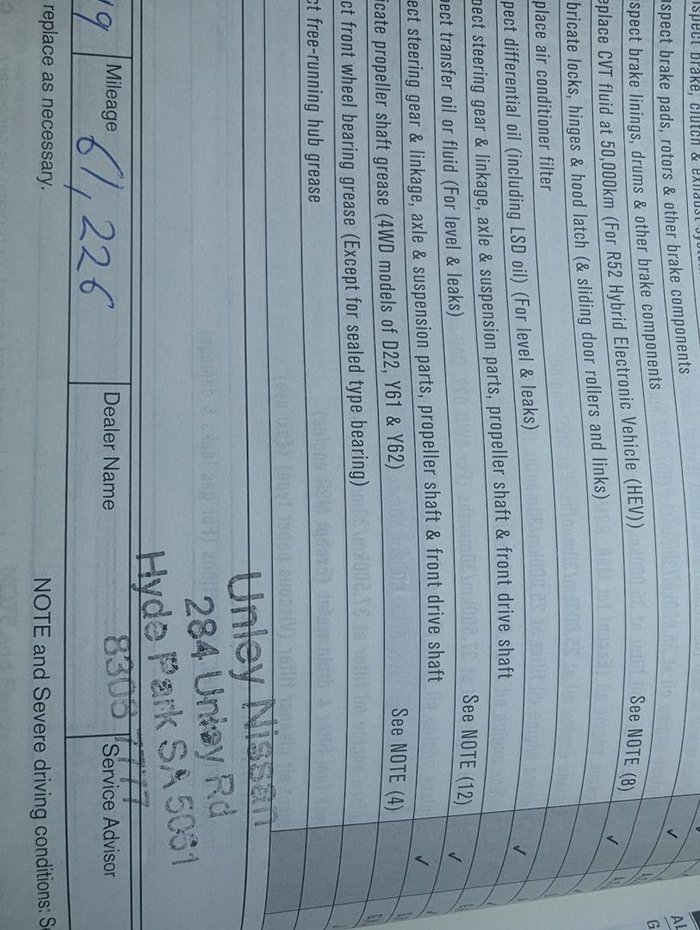 & exhaust
spect brake pads, rotors & other brake components
spect brake linings, drums & other brake components
eplace CVT fluid at 50,000km (For R52 Hybrid Electronic Vehicle (HEV)) See NOTE (8)
bricate locks, hinges & hood latch (& sliding door rollers and links)
place air conditioner filter
pect differential oil (including LSD oil) (For level & leaks)
pect steering gear & linkage, axle & suspension parts, propeller shaft & front drive shaft
ect transfer oil or fluid (For level & leaks) See NOTE (12)
ect steering gear & linkage, axle & suspension parts, propeller shaft & front drive shaft
icate propeller shaft grease (4WD models of D22, Y61 & Y62) See NOTE (4)
ct front wheel bearing grease (Except for sealed type bearing)
ct free-running hub grease
Unley Nissan
284 Unley Rd
Hyde Park SA 5061
8306 7777
19 Mileage 61,226 Dealer Name Service Advisor
replace as necessary. NOTE and Severe driving conditions: